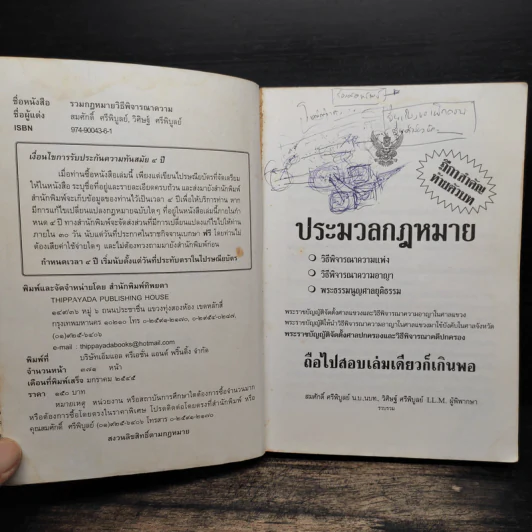 ชื่อหนังสือ รวมกฎหมายวิธีพิจารณาความ
ชื่อผู้แต่ง สมศักดิ์ ศรีพิบูลย์, วิศิษฐ์ ศรีพิบูลย์
ISBN 974-90043-6-1
เงื่อนไขการรับประกันความทันสมัย ๔ ปี
เมื่อท่านซื้อหนังสือเล่มนี้ เพียงแต่เขียนไปรษณียบัตรที่จัดเตรียม
ให้ในหนังสือ ระบุชื่อที่อยู่และรายละเอียดครบถ้วน และส่งมายังสำนักพิมพ์
สำนักพิมพ์จะเก็บข้อมูลของท่านไว้เป็นเวลา ๔ ปี เพื่อให้บริการท่าน หาก
มีการแก้ไขเปลี่ยนแปลงกฎหมายฉบับใดๆ ที่อยู่ในหนังสือเล่มนี้ภายในกำหนด
๔ ปี ทางสำนักพิมพ์จะจัดส่งส่วนที่มีการเปลี่ยนแปลงแก้ไขไปให้ท่าน
ภายใน ๓๐ วัน นับแต่วันที่ประกาศในราชกิจจานุเบกษา ฟรี โดยท่านไม่
ต้องเสียค่าใช้จ่ายใดๆ และไม่ต้องทวงถามมายังสำนักพิมพ์ก่อน
กำหนดเวลา ๔ ปี เริ่มนับตั้งแต่วันที่ประทับตราในไปรษณียบัตร
พิมพ์และจัดจำหน่ายโดย สำนักพิมพ์ทิพยดา
THIPPAYADA PUBLISHING HOUSE
หมู่ ๖ ถนนประชาชื่น แขวงทุ่งสองห้อง เขตหลักสี่
กรุงเทพมหานคร ๑๐๒๑๐
e-mail : thippayadabooks@hotmail.com
พิมพ์ที่ บริษัทเอ็มแอล ครีเอชั่น แอนด์ พริ้นติ้ง จำกัด
จำนวนหน้า หน้า
เดือนที่พิมพ์เสร็จ มกราคม ๒๕๔๕
ราคา ๑๕๐ บาท
หมายเหตุ หน่วยงาน หรือสถาบันการศึกษาใดต้องการซื้อจำนวนมาก
หรือต้องการซื้อโดยตรงในราคาพิเศษ โปรดติดต่อโดยตรงที่สำนักพิมพ์ หรือ
คุณสมศักดิ์ ศรีพิบูลย์ โทรสาร
สงวนลิขสิทธิ์ตามกฎหมาย
ฎีกาสำคัญ
ท้ายตัวบท
ประมวลกฎหมาย
วิธีพิจารณาความแพ่ง
วิธีพิจารณาความอาญา
พระธรรมนูญศาลยุติธรรม
พระราชบัญญัติจัดตั้งศาลแขวงและวิธีพิจารณาความอาญาในศาลแขวง
พระราชบัญญัติให้นำวิธีพิจารณาความอาญาในศาลแขวงมาใช้บังคับในศาลจังหวัด
พระราชบัญญัติจัดตั้งศาลปกครองและวิธีพิจารณาคดีปกครอง
ถือไปสอบเล่มเดียวก็เกินพอ
สมศักดิ์ ศรีพิบูลย์ น.บ.,นบท., วิศิษฐ์ ศรีพิบูลย์ LL.M. ผู้พิพากษา
รวบรวม